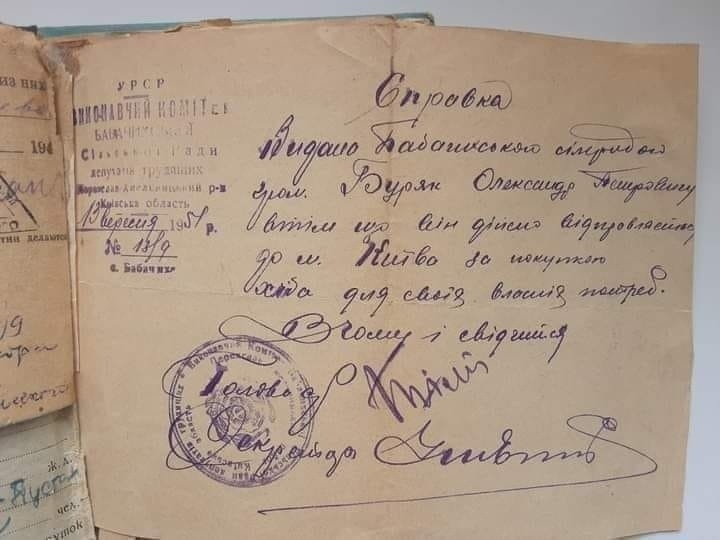 УРСР
ВИКОНАВЧИЙ КОМІТЕТ
БАБАЧИХСЬКОЇ
Сільської Ради
депутатів трудящих
Переяслав-Хмельницький р-н
Київська область
13 вересня 1951 р.
№ 13/9
с. Бабачиха
Справка
Видано Бабачихською сільрадою
гром. Буряк Олександр Петровичу
втім що він дійсно відправляється
до м. Київа за покупкою
хліба для своїх власних потреб.
В чому і свідчиться
Голова с/р
Секр с/ради
из них
194
ж.
чел.
суток